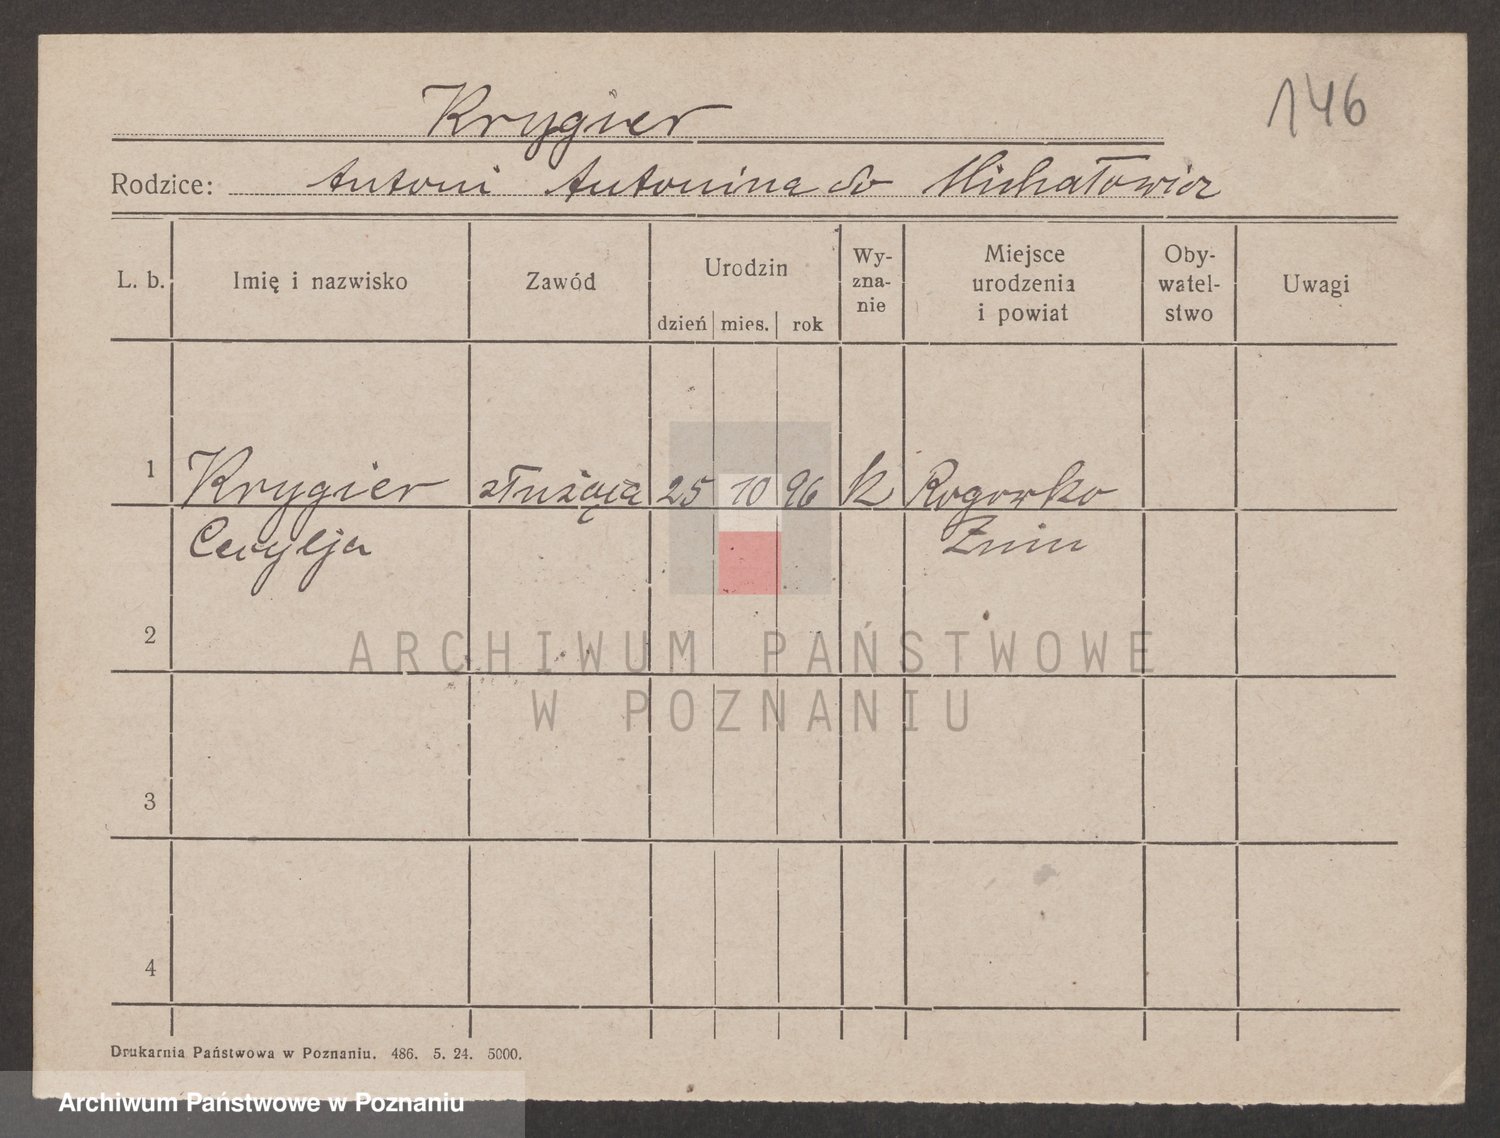 146
Krygier
Rodzice: Antoni Antonina do Michałowicz
L. b. Imię i nazwisko Zawód Urodzin dzień mies. rok Wy-zna-nie Miejsce urodzenia i powiat Oby-watel-stwo Uwagi
1 Krygier służąca 25 10 96 k Rogowko
Cecylja Żnin
2
ARCHIWUM PAŃSTWOWE
W POZNANIU
3
4
Drukarnia Państwowa w Poznaniu. 486. 5. 24. 5000.
Archiwum Państwowe w Poznaniu